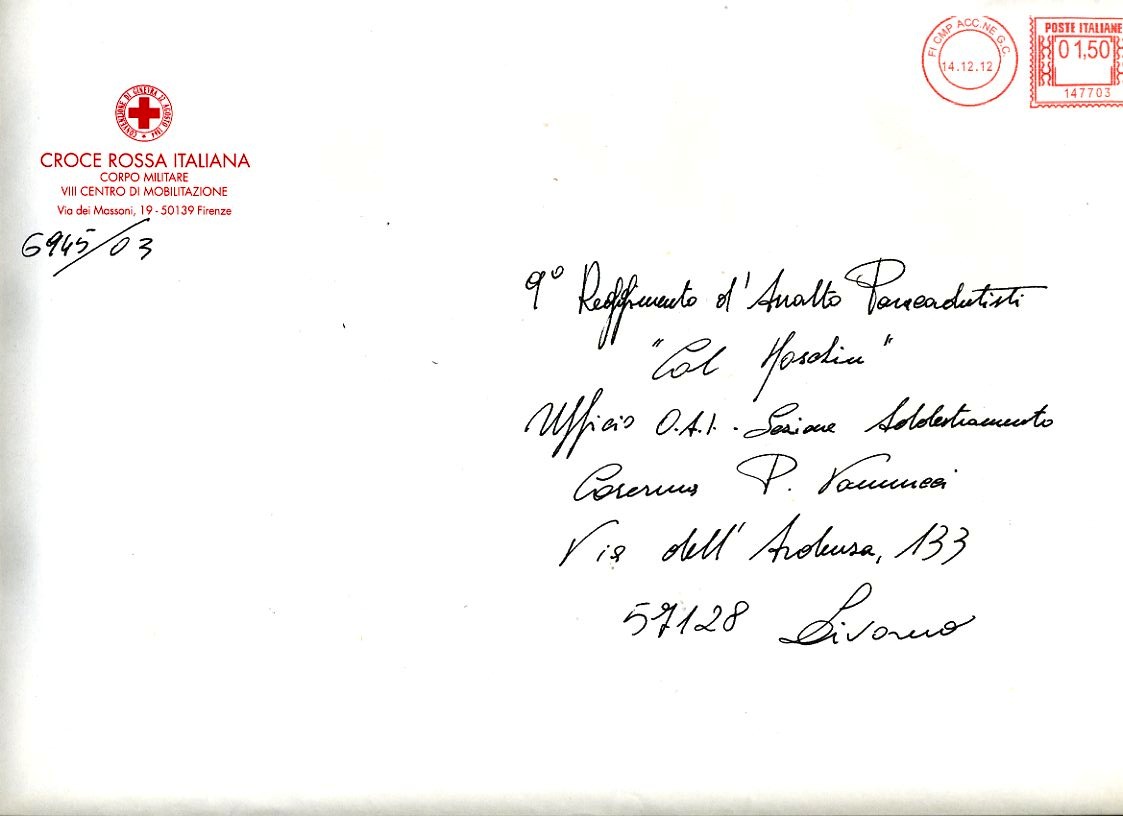 FI CMP ACC.NE G.C.
14.12.12
POSTE ITALIANE
01,50
147703
CONVENZIONE DI GINEVRA 22 AGOSTO 1864
CROCE ROSSA ITALIANA
CORPO MILITARE
VIII CENTRO DI MOBILITAZIONE
Via dei Massoni, 19 - 50139 Firenze
6945/03
9° Reggimento d'Assalto Paracadutisti
"Col Moschin"
Ufficio O.A.I. - Sezione Addestramento
Caserma P. Vannucci
Via dell'Ardenza, 133
57128 Livorno